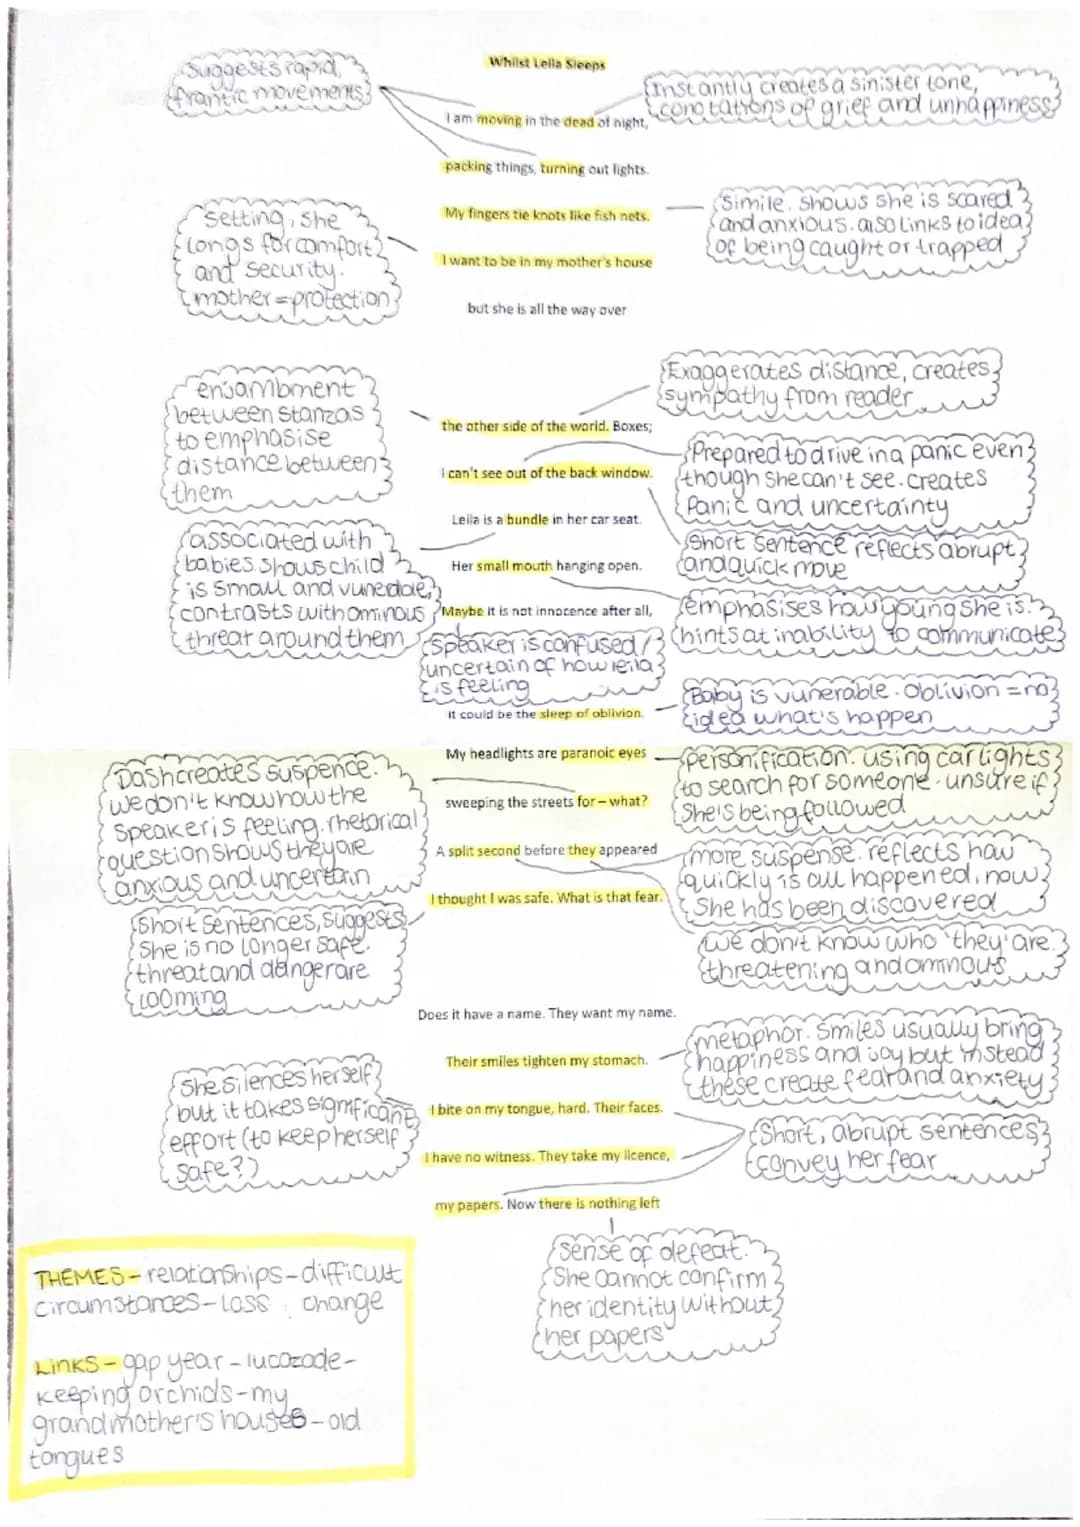 Whilst Leila Sleeps
suggests rapid,
frantic movements
Instantly creates a sinister tone,
conotations of grief and unhappiness
I am moving in the dead of night,
packing things, turning out lights.
My fingers tie knots like fish nets.
Simile. Shows she is scared
and anxious. also links to idea
of being caught or trapped
Setting, she
longs for comfort
and security.
mother = protection
I want to be in my mother's house
but she is all the way over
enjambment
between stanzas
to emphasise
distance between
them
Exaggerates distance, creates
sympathy from reader
the other side of the world. Boxes;
I can't see out of the back window.
Prepared to drive in a panic even
though she can't see. creates
panic and uncertainty
Leila is a bundle in her car seat.
Short sentence reflects abrupt
and quick move
associated with
babies. shows child
is small and vunerable,
contrasts with ominous
threat around them
Her small mouth hanging open.
emphasises how young she is.
hints at inability to communicate
Maybe it is not innocence after all,
Speaker is confused /
uncertain of how leila
is feeling
it could be the sleep of oblivion.
Baby is vunerable. Oblivion = no
idea what's happen
My headlights are paranoic eyes
personification. using car lights
to search for someone. unsure if
she's being followed
Dash creates suspence.
we don't know how the
speaker is feeling. rhetorical
question shows they are
anxious and uncertain
sweeping the streets for – what?
A split second before they appeared
more suspense. reflects how
quickly is all happened, now
she has been discovered
I thought I was safe. What is that fear.
Short sentences, suggests
she is no longer safe.
threat and danger are
looming
we don't know who 'they' are.
threatening and ominous
Does it have a name. They want my name.
Their smiles tighten my stomach.
metaphor. Smiles usually bring
happiness and joy but instead
these create fear and anxiety
She silences herself
but it takes significant
effort (to keep herself
safe?)
I bite on my tongue, hard. Their faces.
I have no witness. They take my licence,
Short, abrupt sentences
convey her fear
my papers. Now there is nothing left
Sense of defeat.
She cannot confirm
her identity without
her papers
THEMES – relationships – difficult
circumstances – loss . change
Links – gap year – lucozade –
keeping orchids – my
grandmother's houses – old
tongues